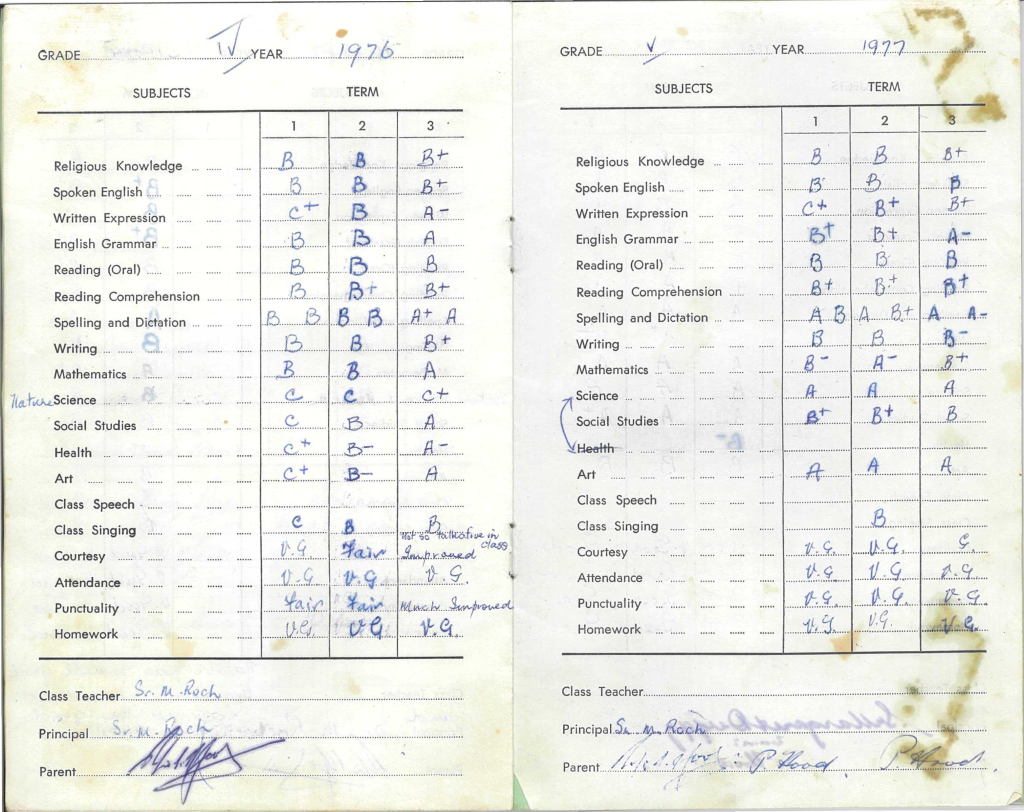 GRADE IV YEAR 1976
SUBJECTS TERM
1 2 3
Religious Knowledge B B B+
Spoken English B B B+
Written Expression C+ B A-
English Grammar B B A
Reading (Oral) B B B
Reading Comprehension B B+ B+
Spelling and Dictation B B B B A+ A
Writing B B B+
Mathematics B B A
Nature Science C C C+
Social Studies C B A
Health C+ B- A-
Art C+ B- A
Class Speech
Class Singing C B B
not so talkative in class
Courtesy V.G. Fair Improved
Attendance V.G V.G V.G.
Punctuality Fair Fair Much Improved
Homework V.G V.G V.G.
Class Teacher Sr. M. Roch
Principal Sr. M. Roch
Parent
GRADE V YEAR 1977
SUBJECTS TERM
1 2 3
Religious Knowledge B B B+
Spoken English B B B
Written Expression C+ B+ B+
English Grammar B+ B+ A-
Reading (Oral) B B B
Reading Comprehension B+ B+ B+
Spelling and Dictation A B A B+ A A-
Writing B B B-
Mathematics B- A- B+
Science A A A
Social Studies B+ B+ B
Health
Art A A A
Class Speech
Class Singing B
Courtesy V.G. V.G. G.
Attendance V.G V.G V.G
Punctuality V.G. V.G. V.G.
Homework V.G. V.G. V.G.
Class Teacher
Principal Sr. M. Roch
Parent P. Hood P. Hood